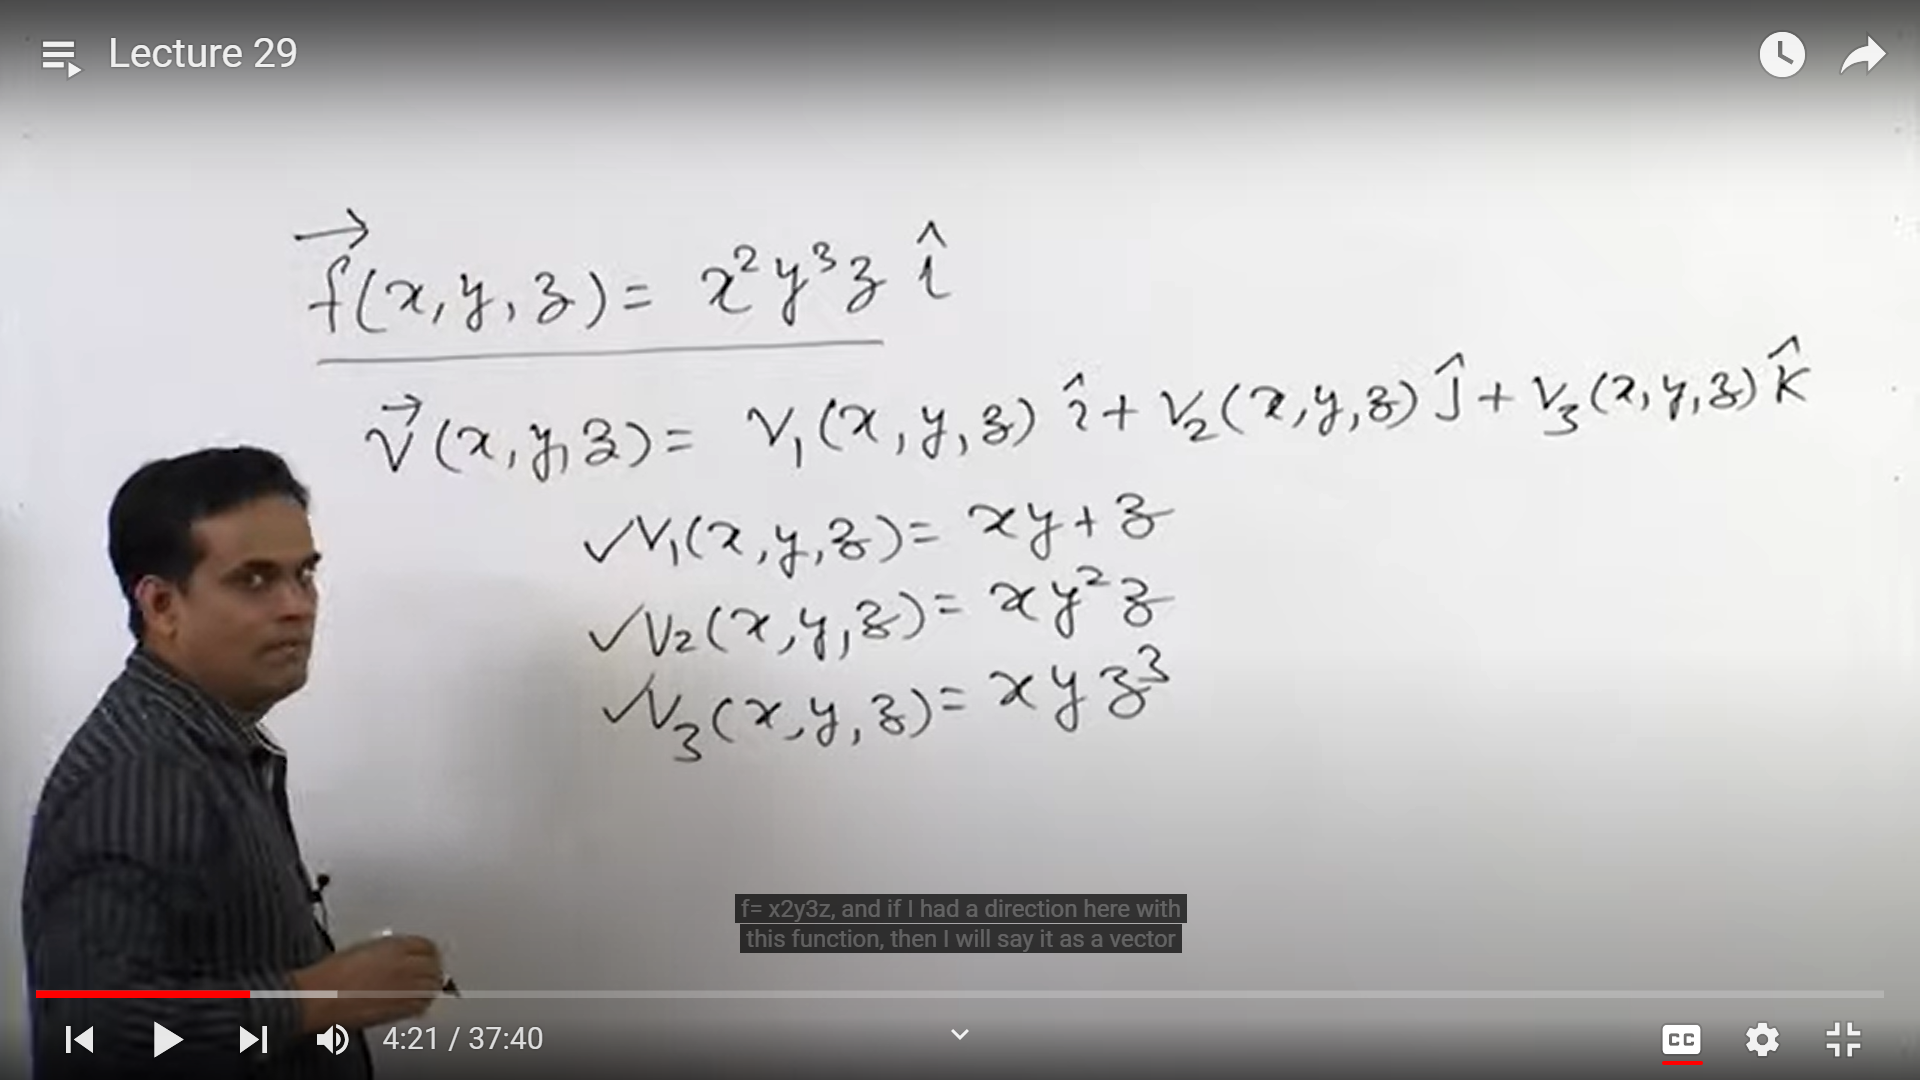 Lecture 29
f⃗(x,y,z) = x²y³z î
V⃗(x,y,z) = V₁(x,y,z) î + V₂(x,y,z) ĵ + V₃(x,y,z) k̂
✓V₁(x,y,z) = xy+z
✓V₂(x,y,z) = xy²z
✓V₃(x,y,z) = xyz³
f= x2y3z, and if I had a direction here with
this function, then I will say it as a vector
4:21 / 37:40
CC